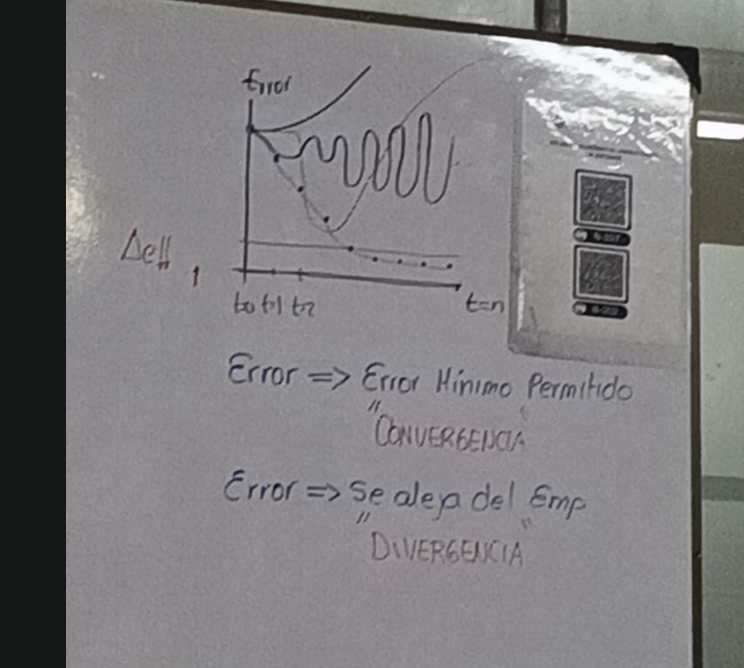 Error
t0 t1 t2
t=n
Error => Error Mínimo Permitido
"CONVERGENCIA"
Error => Se aleja del Emp
"DIVERGENCIA"